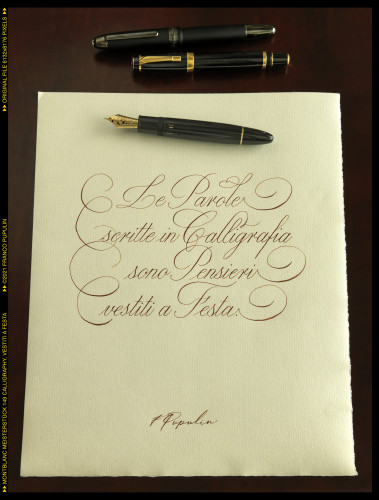 Le Parole
scritte in Calligrafia
sono Pensieri
vestiti a Festa.
f Pupulin
MONTBLANC MEISTERSTÜCK 149 CALLIGRAPHY, VESTITI A FESTA
©2021 FRANCO PUPULIN
ORIGINAL FILE 6132x8176 PIXELS